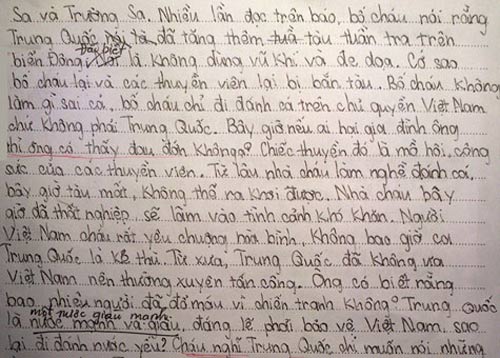 Sa và Trường Sa. Nhiều lần đọc trên báo, bố cháu nói rằng
Trung Quốc đã tăng thêm tàu tuần tra trên
biển Đông, đây biết là không dùng vũ khí và đe dọa. Cớ sao
bố cháu lại và các thuyền viên lại bị bắn tàu. Bố cháu không
làm gì sai cả, bố cháu chỉ đi đánh cá trên chủ quyền Việt Nam
chứ không phải Trung Quốc. Bây giờ nếu ai hại gia đình ông
thì ông có thấy đau đớn không ạ? Chiếc thuyền đó là mồ hôi, công
sức của các thuyền viên. Từ lâu nhà cháu làm nghề đánh cá,
bây giờ tàu mất, không thể ra khơi được. Nhà cháu bây
giờ đã thất nghiệp sẽ lâm vào tình cảnh khó khăn. Người
Việt Nam cháu rất yêu chuộng hòa bình, không bao giờ coi
Trung Quốc là kẻ thù. Từ xưa, Trung Quốc đã không ưa
Việt Nam nên thường xuyên tấn công. Ông có biết rằng
bao nhiêu người đã đổ máu vì chiến tranh không? Trung Quốc
là một nước giàu mạnh nước mạnh và giàu, đáng lẽ phải bảo vệ Việt Nam, sao
lại đi đánh nước yếu? Cháu nghĩ Trung Quốc chỉ muốn nói những